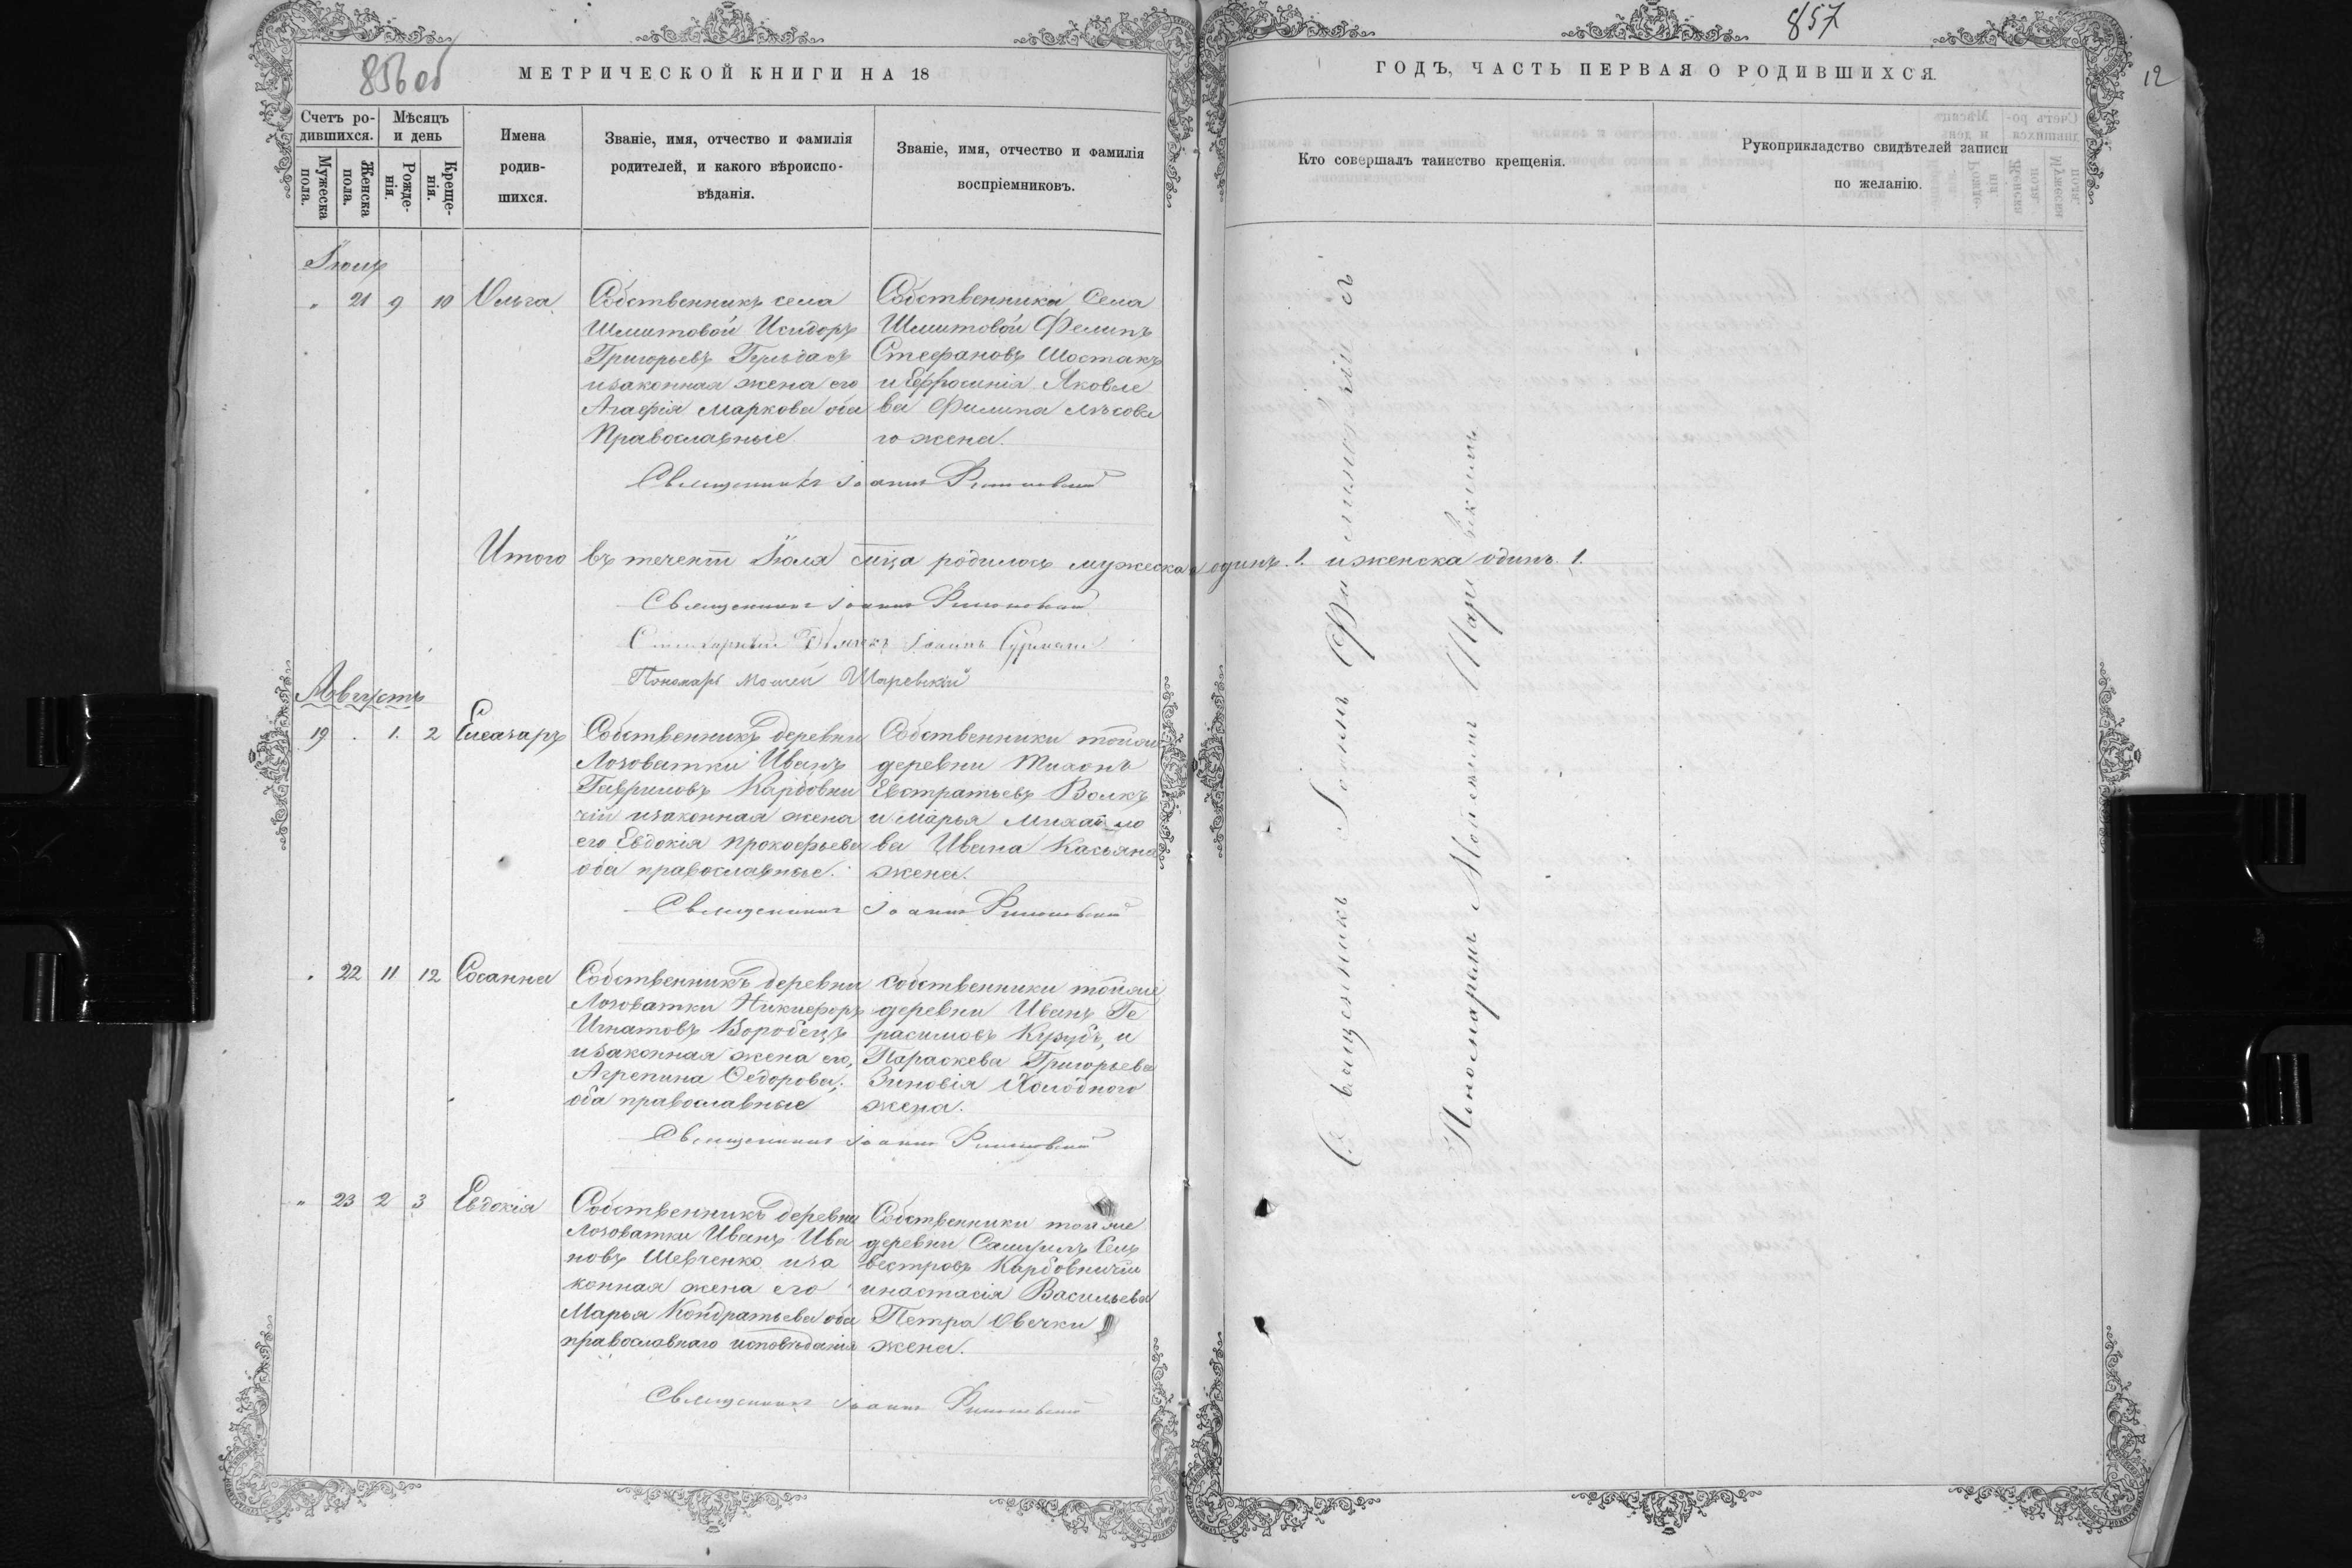 856 об
МЕТРИЧЕСКОЙ КНИГИ НА 18
Счетъ ро-
дившихся.
Мужеска
пола.
Женска
пола.
Мѣсяцъ
и день
Рожде-
нія.
Креще-
нія.
Имена
родив-
шихся.
Званіе, имя, отчество и фамилія
родителей, и какого вѣроиспо-
вѣданія.
Званіе, имя, отчество и фамилія
воспріемниковъ.
Іюль
" 21 9 10 Ольга
Собственникъ села
Шмитовой Исидоръ
Григорьевъ
изаконная жена его
Агафія Маркова оба
Православные
Собственники Села
Шмитовой Фелипъ
Стефановъ Шостакъ
и Ефросинія Яковле
ва Филипа Лѣсова
го жена.
Священникъ Іоаннъ
Итого въ течении Іюля м-ца родилось мужеска одинъ. 1. и женска одинъ. 1.
Священникъ Іоаннъ
Іоаннъ
Пономарь Моисей Шаревскій
Августъ
19 . 1. 2 Елеазаръ
Собственникъ деревни
Лозоватки Иванъ
Гавриловъ Карбовни
чій изаконная жена
его Евдокія Прокофьева
оба православные.
Собственники тойже
деревни Тихонъ
Евстратьевъ Волкъ
и Марья Михайло
ва Ивана Касьяна
жена.
Священникъ Іоаннъ
. 22 11 12 Сосанна
Собственникъ деревни
Лозоватки Никифоръ
Игнатовъ Воробецъ
изаконная жена его,
Агрепина Федорова.
оба православные
собственники тойже
деревни Иванъ Ге
расимовъ Кузубъ, и
Параскева Григорьева
Зиновія Холодного
жена.
Священникъ Іоаннъ
" 23 2 3 Евдокія
Собственникъ деревни
Лозоватки Иванъ Ива
новъ Шевченко иза
конная жена его
Марья Кондратьева оба
православнаго исповѣданія
Собственники тойже
деревни Самуилъ Сель
вестровъ Карбовничій
инастасія Васильева
Петра Овечки
жена.
Священникъ Іоаннъ
857
12
ГОДЪ, ЧАСТЬ ПЕРВАЯ О РОДИВШИХСЯ.
Кто совершалъ таинство крещенія.
Рукоприкладство свидѣтелей записи
по желанію.
Священникъ Іоаннъ
Пономаремъ Моисеемъ Шаревскимъ